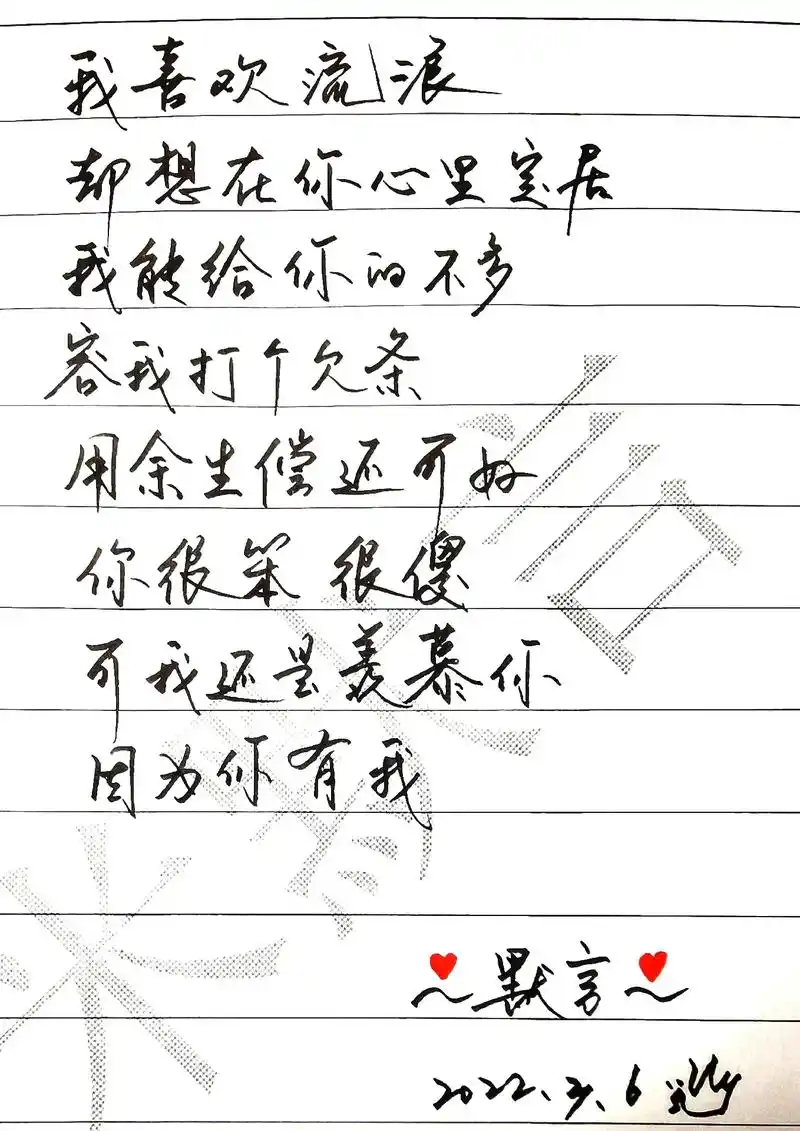 我喜欢流浪
却想在你心里定居
我能给你的不多
容我打个欠条
用余生偿还可好
你很笨 很傻
可我还是羡慕你
因为你有我
~默言~
2022.3.6